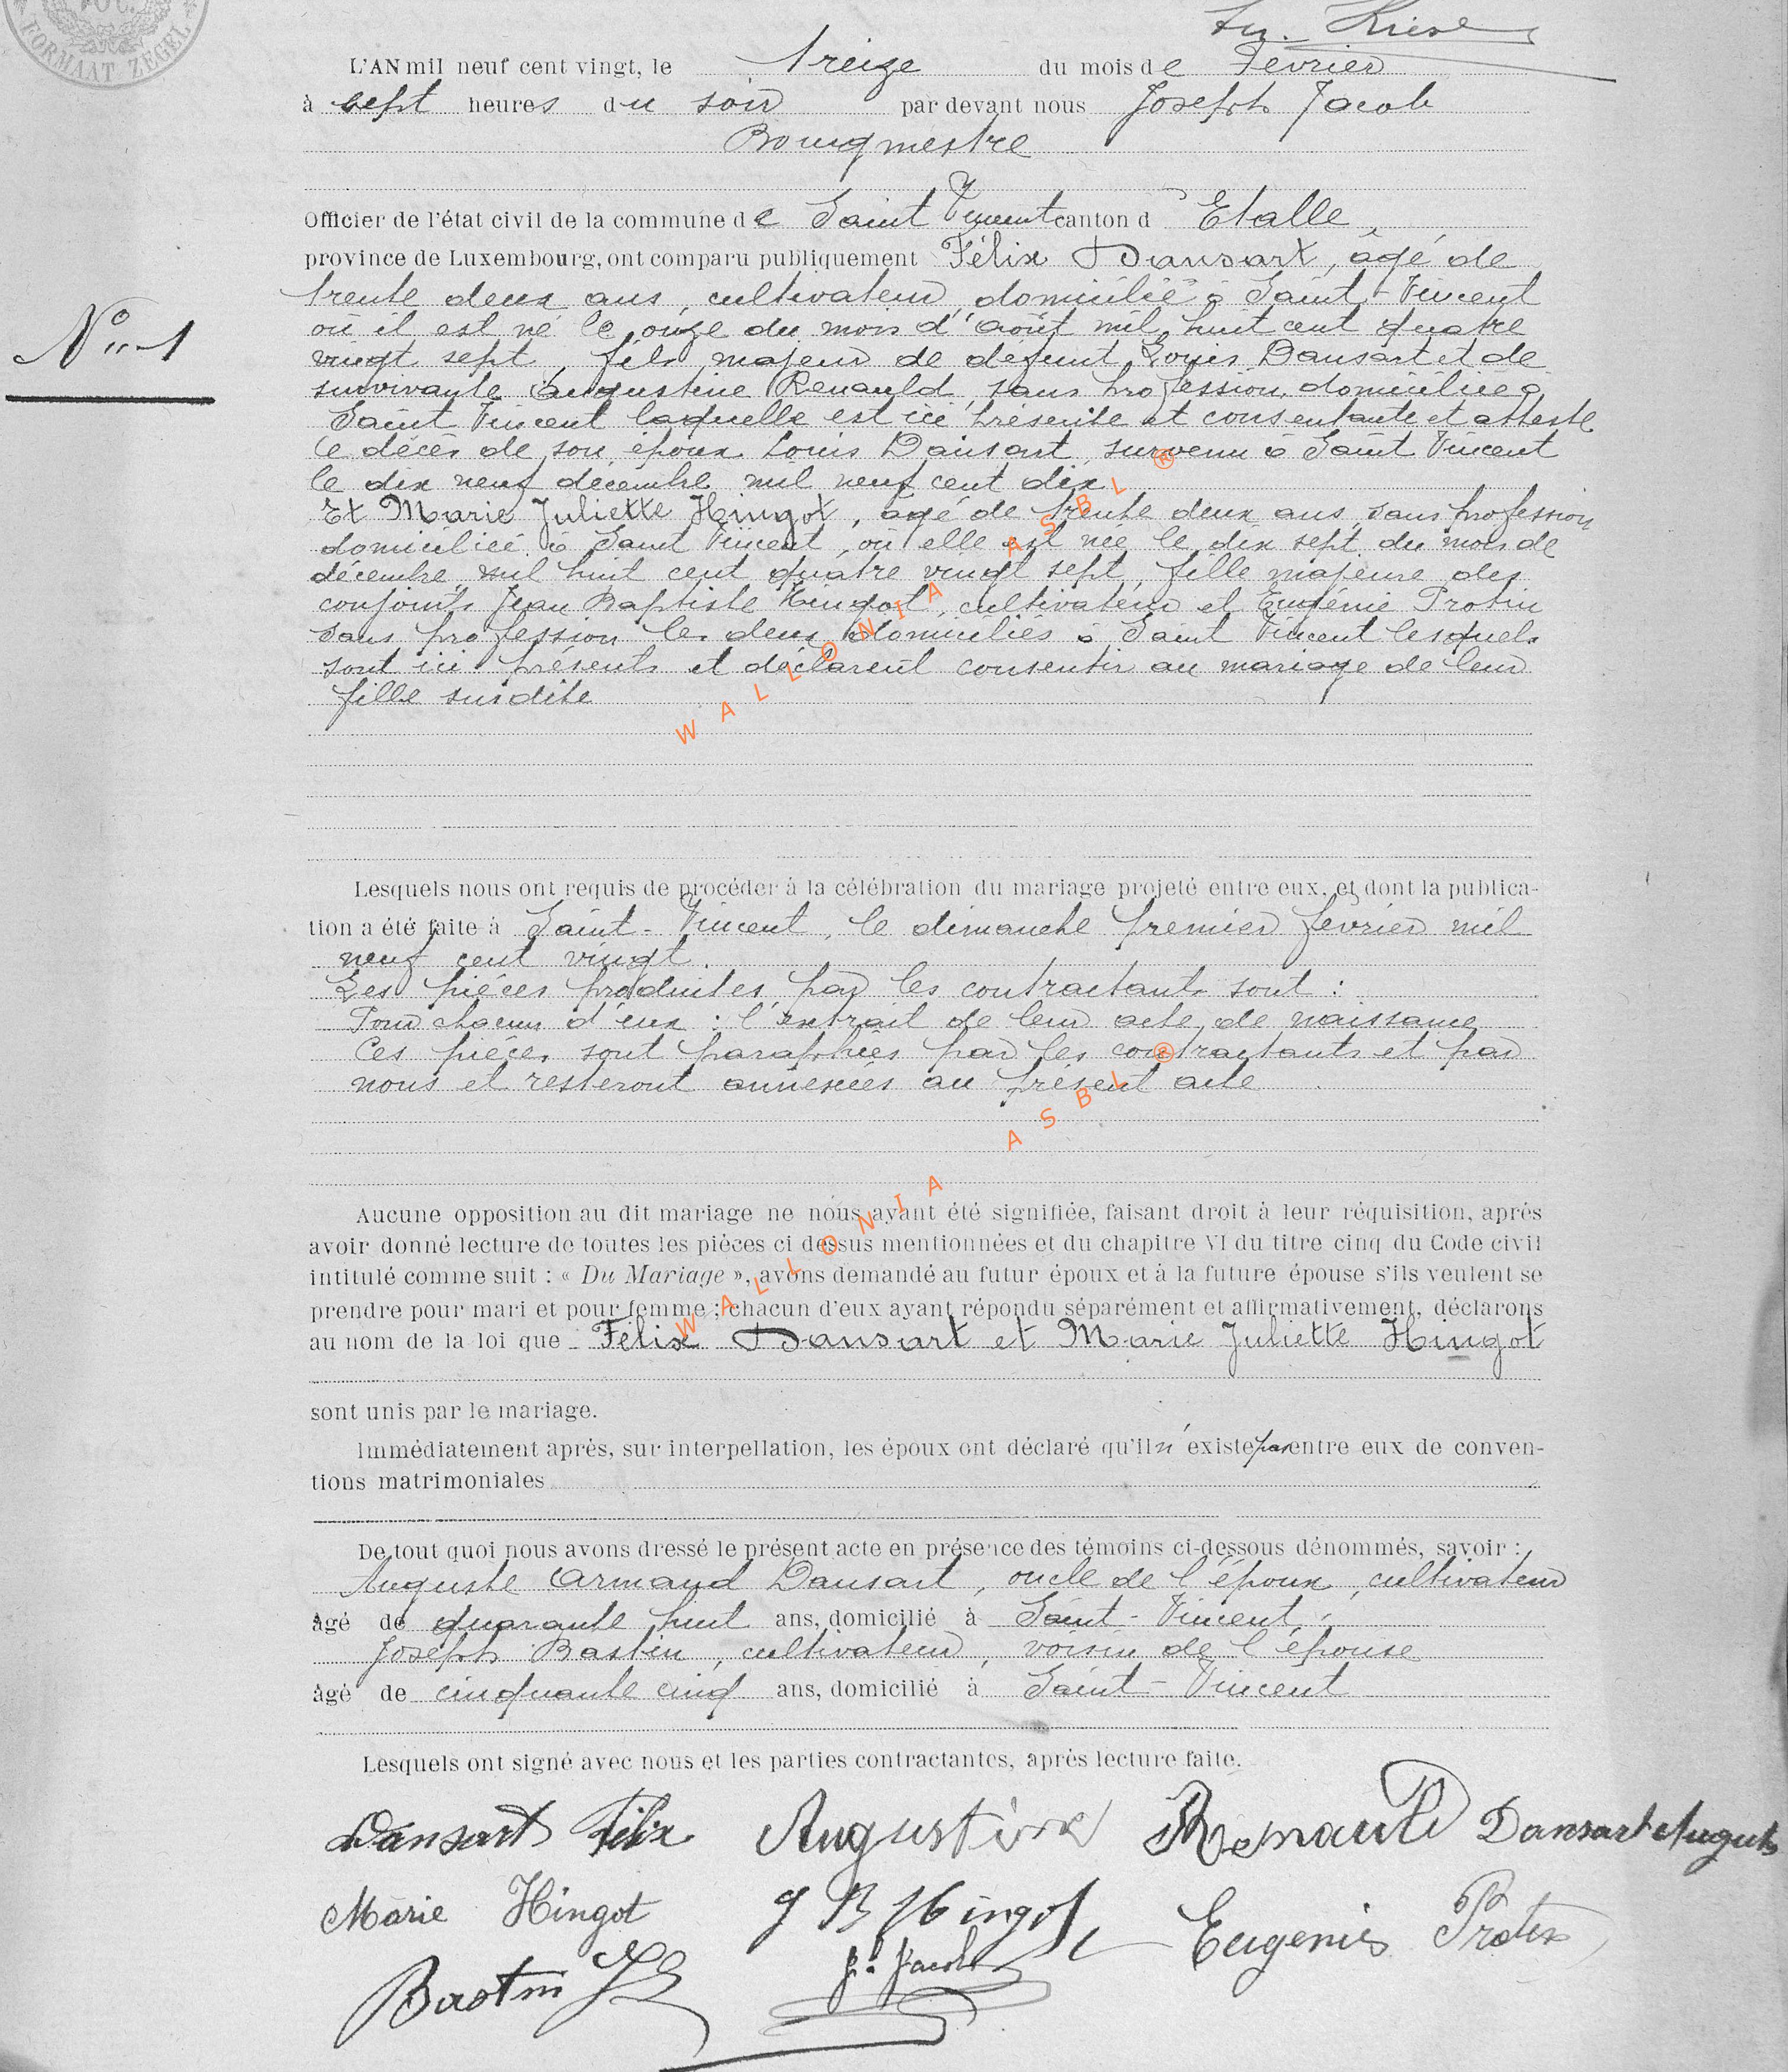 FORMAAT ZEGEL
L'AN mil neuf cent vingt, le treize du mois de Février
à sept heures du soir par devant nous Joseph Jacob
Bourgmestre
Officier de l'état civil de la commune de Saint Vincent canton d' Etalle,
province de Luxembourg, ont comparu publiquement Félix Dansart, âgé de
trente deux ans, cultivateur domicilié à Saint-Vincent
où il est né le onze du mois d'août mil huit cent quatre
N° 1
vingt sept, fils majeur de defunt Louis Dansart et de
survivante Augustine Renauld, sans profession, domiciliée à
Saint Vincent laquelle est ici présente et consentante et atteste
le décès de son époux Louis Dansart, survenu à Saint Vincent
le dix neuf décembre mil neuf cent dix
Et Marie Juliette Hingot, agé de trente deux ans, sans profession
domiciliée à Saint Vincent, où elle est née le dix sept du mois de
décembre mil huit cent quatre vingt sept, fille majeure des
conjoints Jean Baptiste Hingot, cultivateur et Eugénie Protin
sans profession les deux domiciliés à Saint Vincent lesquels
sont ici présents et déclarent consentir au mariage de leur
fille susdite
WALLONIA ASBL ®
Lesquels nous ont requis de procéder à la célébration du mariage projeté entre eux, et dont la publica-
tion a été faite à Saint-Vincent, le dimanche premier fevrier mil
neuf cent vingt.
Les pièces produites par les contractants sont :
Pour chacun d'eux : l'extrait de leur acte de naissance
Ces pièces sont paraphées par les contractants et par
nous et resteront annexées au présent acte
WALLONIA ASBL ®
Aucune opposition au dit mariage ne nous ayant été signifiée, faisant droit à leur réquisition, après
avoir donné lecture de toutes les pièces ci dessus mentionnées et du chapitre VI du titre cinq du Code civil
intitulé comme suit : « Du Mariage », avons demandé au futur époux et à la future épouse s'ils veulent se
prendre pour mari et pour femme ; chacun d'eux ayant répondu séparément et affirmativement, déclarons
au nom de la loi que Félix Dansart et Marie Juliette Hingot
sont unis par le mariage.
Immédiatement après, sur interpellation, les époux ont déclaré qu'il n'existe pas entre eux de conven-
tions matrimoniales
De tout quoi nous avons dressé le présent acte en présence des témoins ci-dessous dénommés, savoir :
Auguste Armand Dansart, oncle de l'époux, cultivateur
âgé de quarante huit ans, domicilié à Saint-Vincent,
Joseph Bastin, cultivateur, voisin de l'épouse
âgé de cinquante cinq ans, domicilié à Saint-Vincent
Lesquels ont signé avec nous et les parties contractantes, après lecture faite.
Dansart Félix Augustine Renauld Dansart August
Marie Hingot J B Hingot Eugenie Protin
Bastin J. Jacob